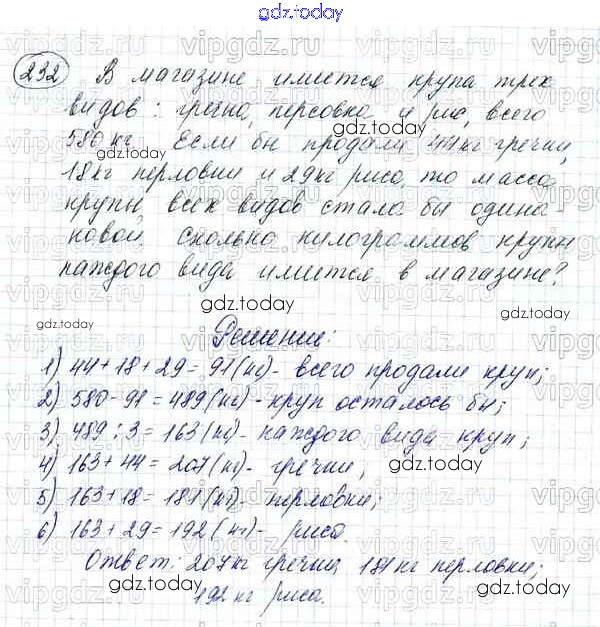 gdz.today
232 В магазине имеется крупа трех
видов: гречка, перловка и рис, всего
580 кг. Если бы продали 44 кг гречки,
18 кг перловки и 29 кг риса, то масса
крупы всех видов стала бы одина-
ковой. Сколько килограммов крупы
каждого вида имеется в магазине?
gdz.today
Решение:
1) 44 + 18 + 29 = 91 (кг) - всего продали круп;
2) 580 - 91 = 489 (кг) - круп осталось бы;
3) 489 : 3 = 163 (кг) - каждого вида круп;
4) 163 + 44 = 207 (кг) - гречки;
5) 163 + 18 = 181 (кг) - перловки;
6) 163 + 29 = 192 (кг) - риса.
Ответ: 207 кг гречки, 181 кг перловки;
192 кг риса.
gdz.today